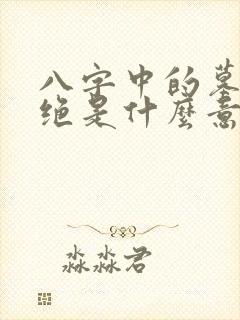 八字中的墓
绝是什麼意
淼淼君